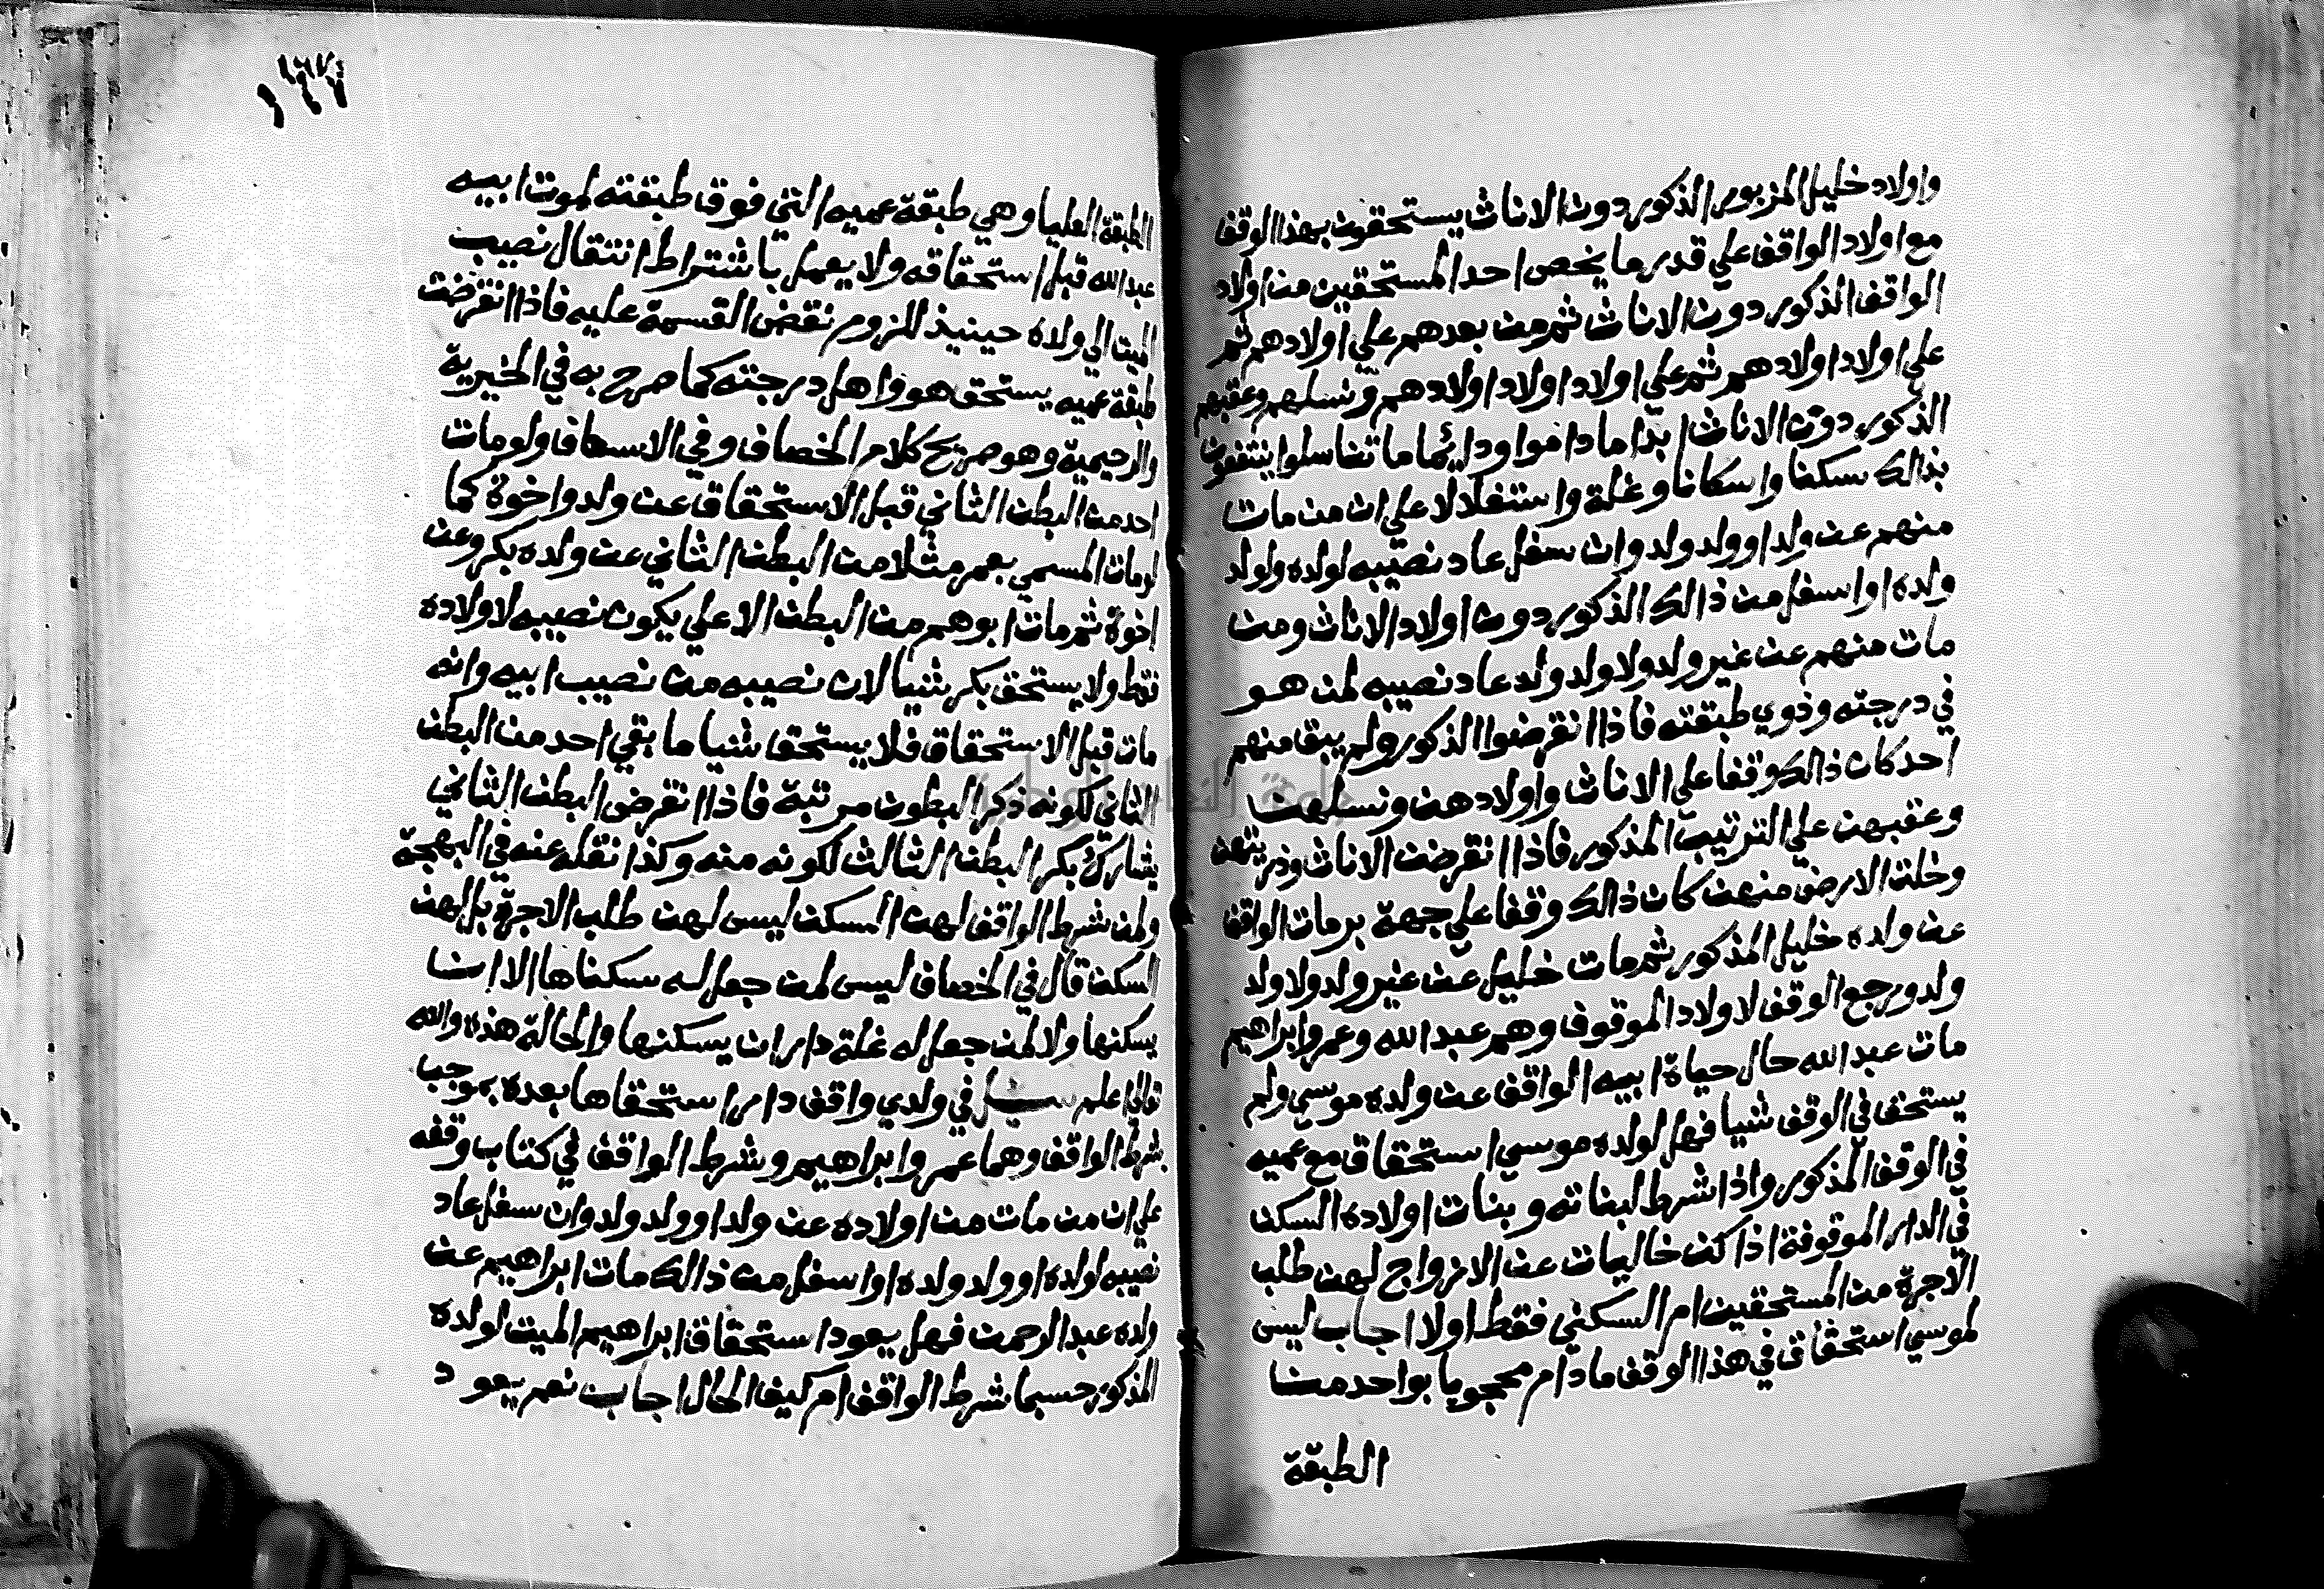 واولاد خليل المزبور الذكور دون الاناث يستحقون بهذا الوقف
مع اولاد الواقف علي قدر ما يخص احد المستحقين من اولاد
الواقف الذكور دون الاناث ثم من بعدهم علي اولادهم ثم
علي اولاد اولادهم ثم علي اولاد اولاد اولادهم ونسلهم وعقبهم
الذكور دون الاناث ابدا ما داموا ودائما ما تناسلوا ينتفعون
بذالك سكنا واسكانا وغلة واستغلالا علي ان من مات
منهم عن ولد او ولد ولد وان سفل عاد نصيبه لولده ولولد
ولده او اسفل من ذالك الذكور دون اولاد الاناث ومن
مات منهم عن غير ولد ولا ولد ولد عاد نصيبه لمن هو
في درجته وذوي طبقته فاذا انقرضوا الذكور ولم يبق منهم
احد كان ذالك وقفا علي الاناث واولادهن ونسلهن
وعقبهن علي الترتيب المذكور فاذا انقرضن الاناث وذريتهن
وخلت الارض منهن كان ذالك وقفا علي جهة بر مات الواقف
عن ولده خليل المذكور ثم مات خليل عن غير ولد ولا ولد
ولد ورجع الوقف لاولاد الموقوف وهم عبد الله وعمر وابراهيم
مات عبد الله حال حياة ابيه الواقف عن ولده موسي ولم
يستحق في الوقف شيا فهل لولده موسي استحقاق مع عميه
في الوقف المذكور واذا شرط لبناته وبنات اولاده السكن
في الدار الموقوفة اذا كن خاليات عن الازواج لهن طلب
الاجرة من المستحقين ام السكني فقط اولا اجاب ليس
لموسي استحقاق في هذا الوقف ما دام محجوبا بواحد من
الطبقة
١٦٧
الطبقة العليا وهي طبقة عميه التي فوق طبقته لموت ابيه
عبد الله قبل استحقاقه ولا يعمل باشتراط انتقال نصيب
الميت الي ولاده حينيذ للزوم نقض القسمة عليه فاذا انقرضت
طبقة عميه يستحق هو واهل درجته كما صرح به في الخيرية
والرحيمية وهو صريح كلام الخصاف وفي الاسعاف ولو مات
احد من البطن الثاني قبل الاستحقاق عن ولد واخوة كما
لو مات المسمي بعمر مثلا من البطن الثاني عن ولده بكر وعن
اخوة ثم مات ابوهم من البطن الاعلي يكون نصيبه لاولاده
فقط ولا يستحق بكر شيا لان نصيبه من نصيب ابيه وانه
مات قبل الاستحقاق فلا يستحق شيا ما بقي احد من البطن
الثاني لكونه ذكر البطون مرتبة فاذا انقرض البطن الثاني
يشارك بكر البطن الثالث لكونه منه وكذا نقله عنه في البهجة
ولمن شرط الواقف لهن السكن ليس لهن طلب الاجرة بل لهن
السكن قال في الخصاف ليس لمن جعل له سكناها الا ان
يسكنها ولا لمن جعل له غلة دار ان يسكنها والحالة هذه والله
تعالي اعلم سئل في ولدي واقف دار استحقاها بعده بموجب
شرط الواقف وهما عمر وابراهيم وشرط الواقف في كتاب وقفه
علي ان من مات من اولاده عن ولد او ولد ولد وان سفل عاد
نصيبه لولده او ولد ولده او اسفل من ذالك مات ابراهيم عن
ولده عبد الرحمن فهل يعود استحقاق ابراهيم الميت لولده
المذكور حسبما شرط الواقف ام كيف الحال اجاب نعم يعود